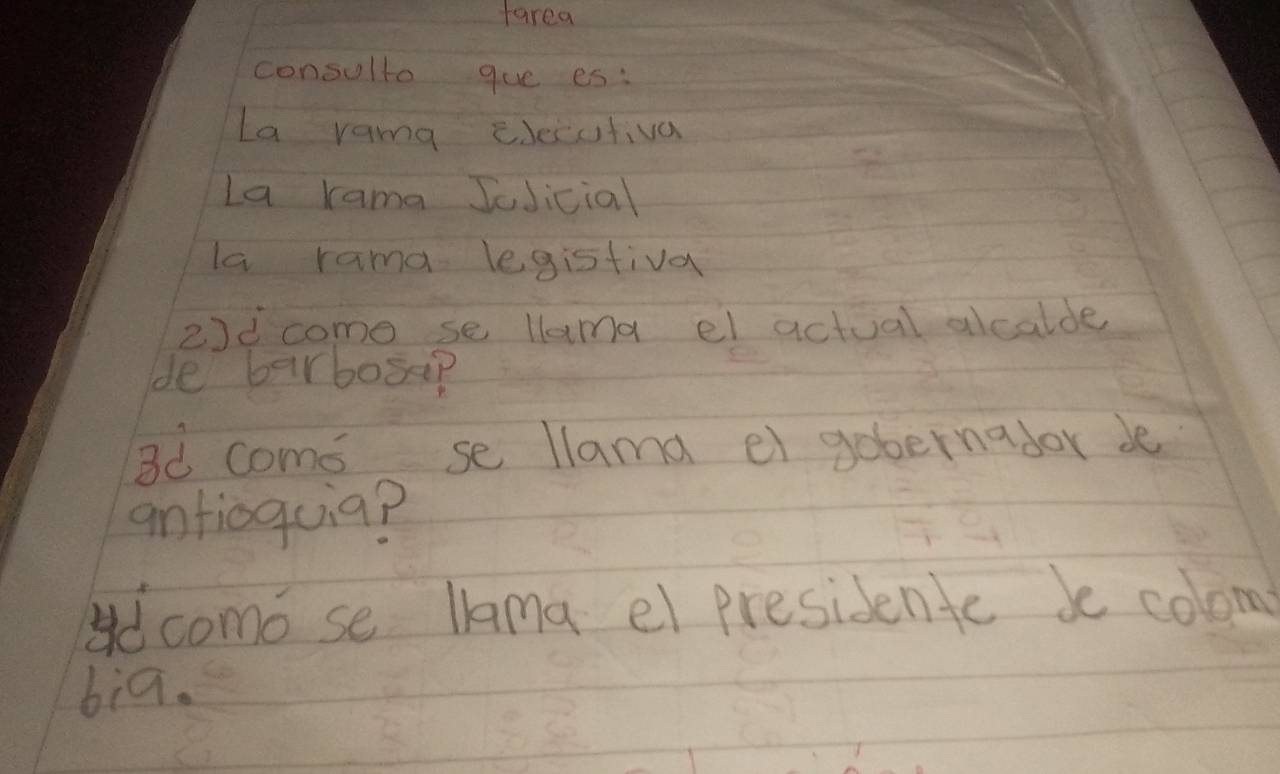 tarea
consulto que es:
La rama Ejecutiva
La rama Judicial
la rama legistiva
2)¿ como se llama el actual alcalde
de barbosa?
3¿ comó se llama el gobernador de
antioquia?
4¿ comó se llama el presidente de colom
bia.